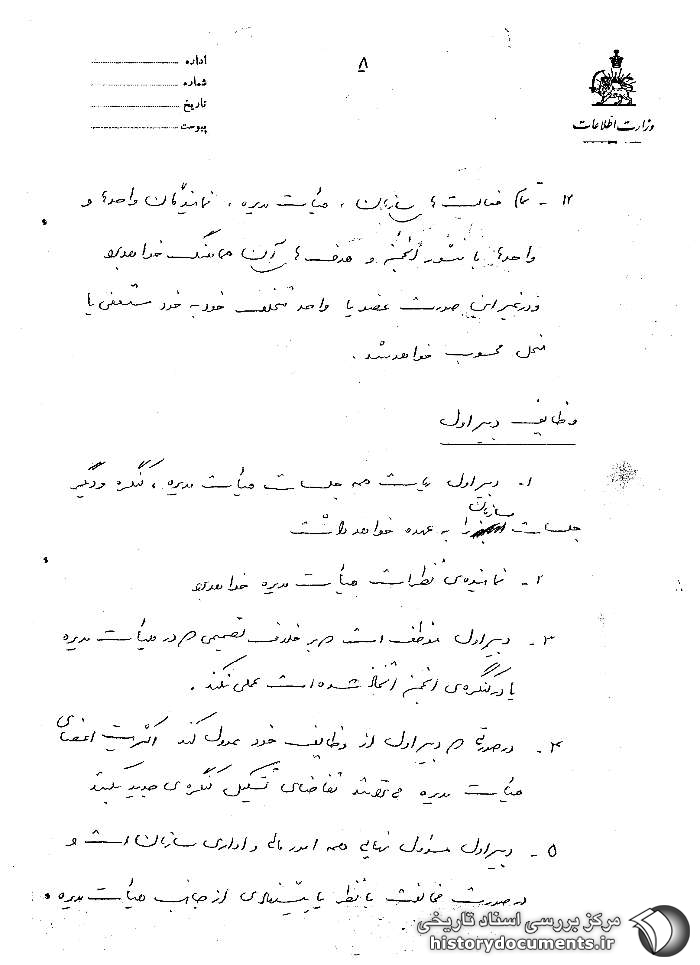 اداره
شماره
تاریخ
پیوست
۸
وزارت اطلاعات
۱۲ - تمام فعالیت های سازمان ، هیأت مدیره ، نمایندگان واحدها و
واحدها با منشور انجمن و هدف های آن هماهنگ خواهد بود
و در غیر این صورت عضو یا واحد متخلف خود به خود مستعفی یا
منحل محسوب خواهد شد .
وظایف دبیر اول
۱- دبیر اول ریاست همه جلسات هیأت مدیره ، کنگره و دیگر
جلسات سازمان را به عهده خواهد داشت
۲- نماینده‌ی نظرات هیأت مدیره خواهد بود
۳- دبیر اول موظف است که بر خلاف تصمیمی که در هیأت مدیره
یا در کنگره‌ی انجمن اتخاذ شده است عملی نکند .
۴- در صورتی که دبیر اول از وظایف خود عدول کند اکثریت اعضای
هیأت مدیره می‌توانند تقاضای تشکیل کنگره‌ی جدید بکنند
۵- دبیر اول مسؤول نهایی همه امور مالی و اداری سازمان است و
در صورت مخالفت با نظر یا پیشنهادی از جانب هیأت مدیره
مرکز بررسی اسناد تاریخی
historydocuments.ir